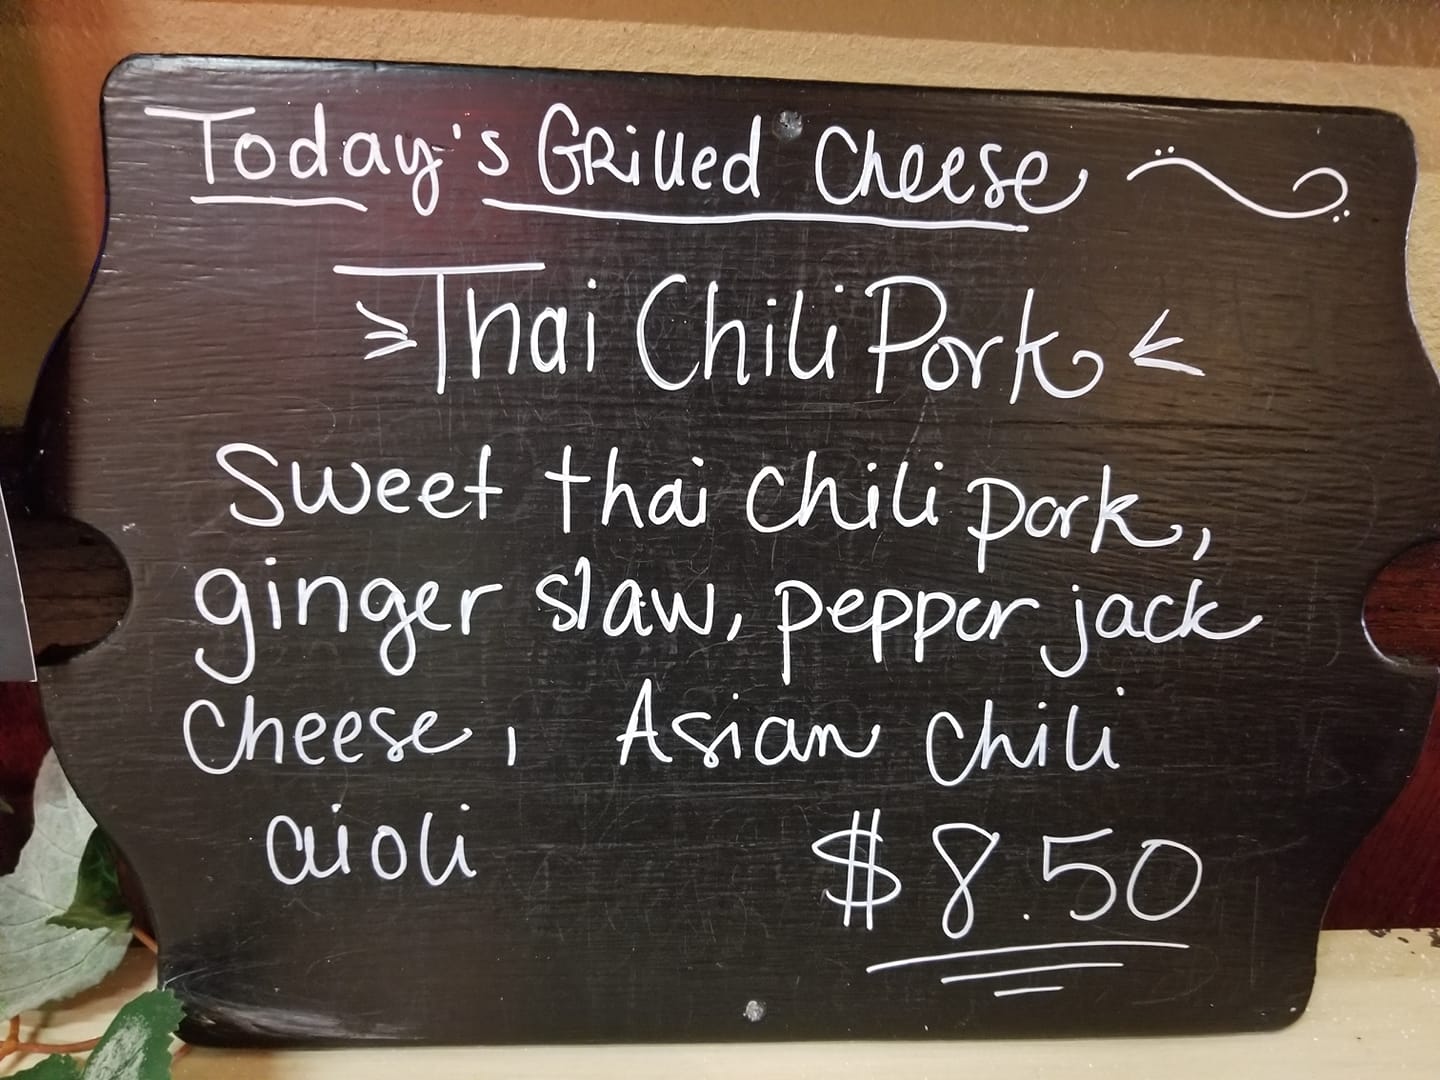 Today's Grilled Cheese
Thai Chili Pork
Sweet thai chili pork,
ginger slaw, pepper jack
cheese, Asian chili
aioli $8.50